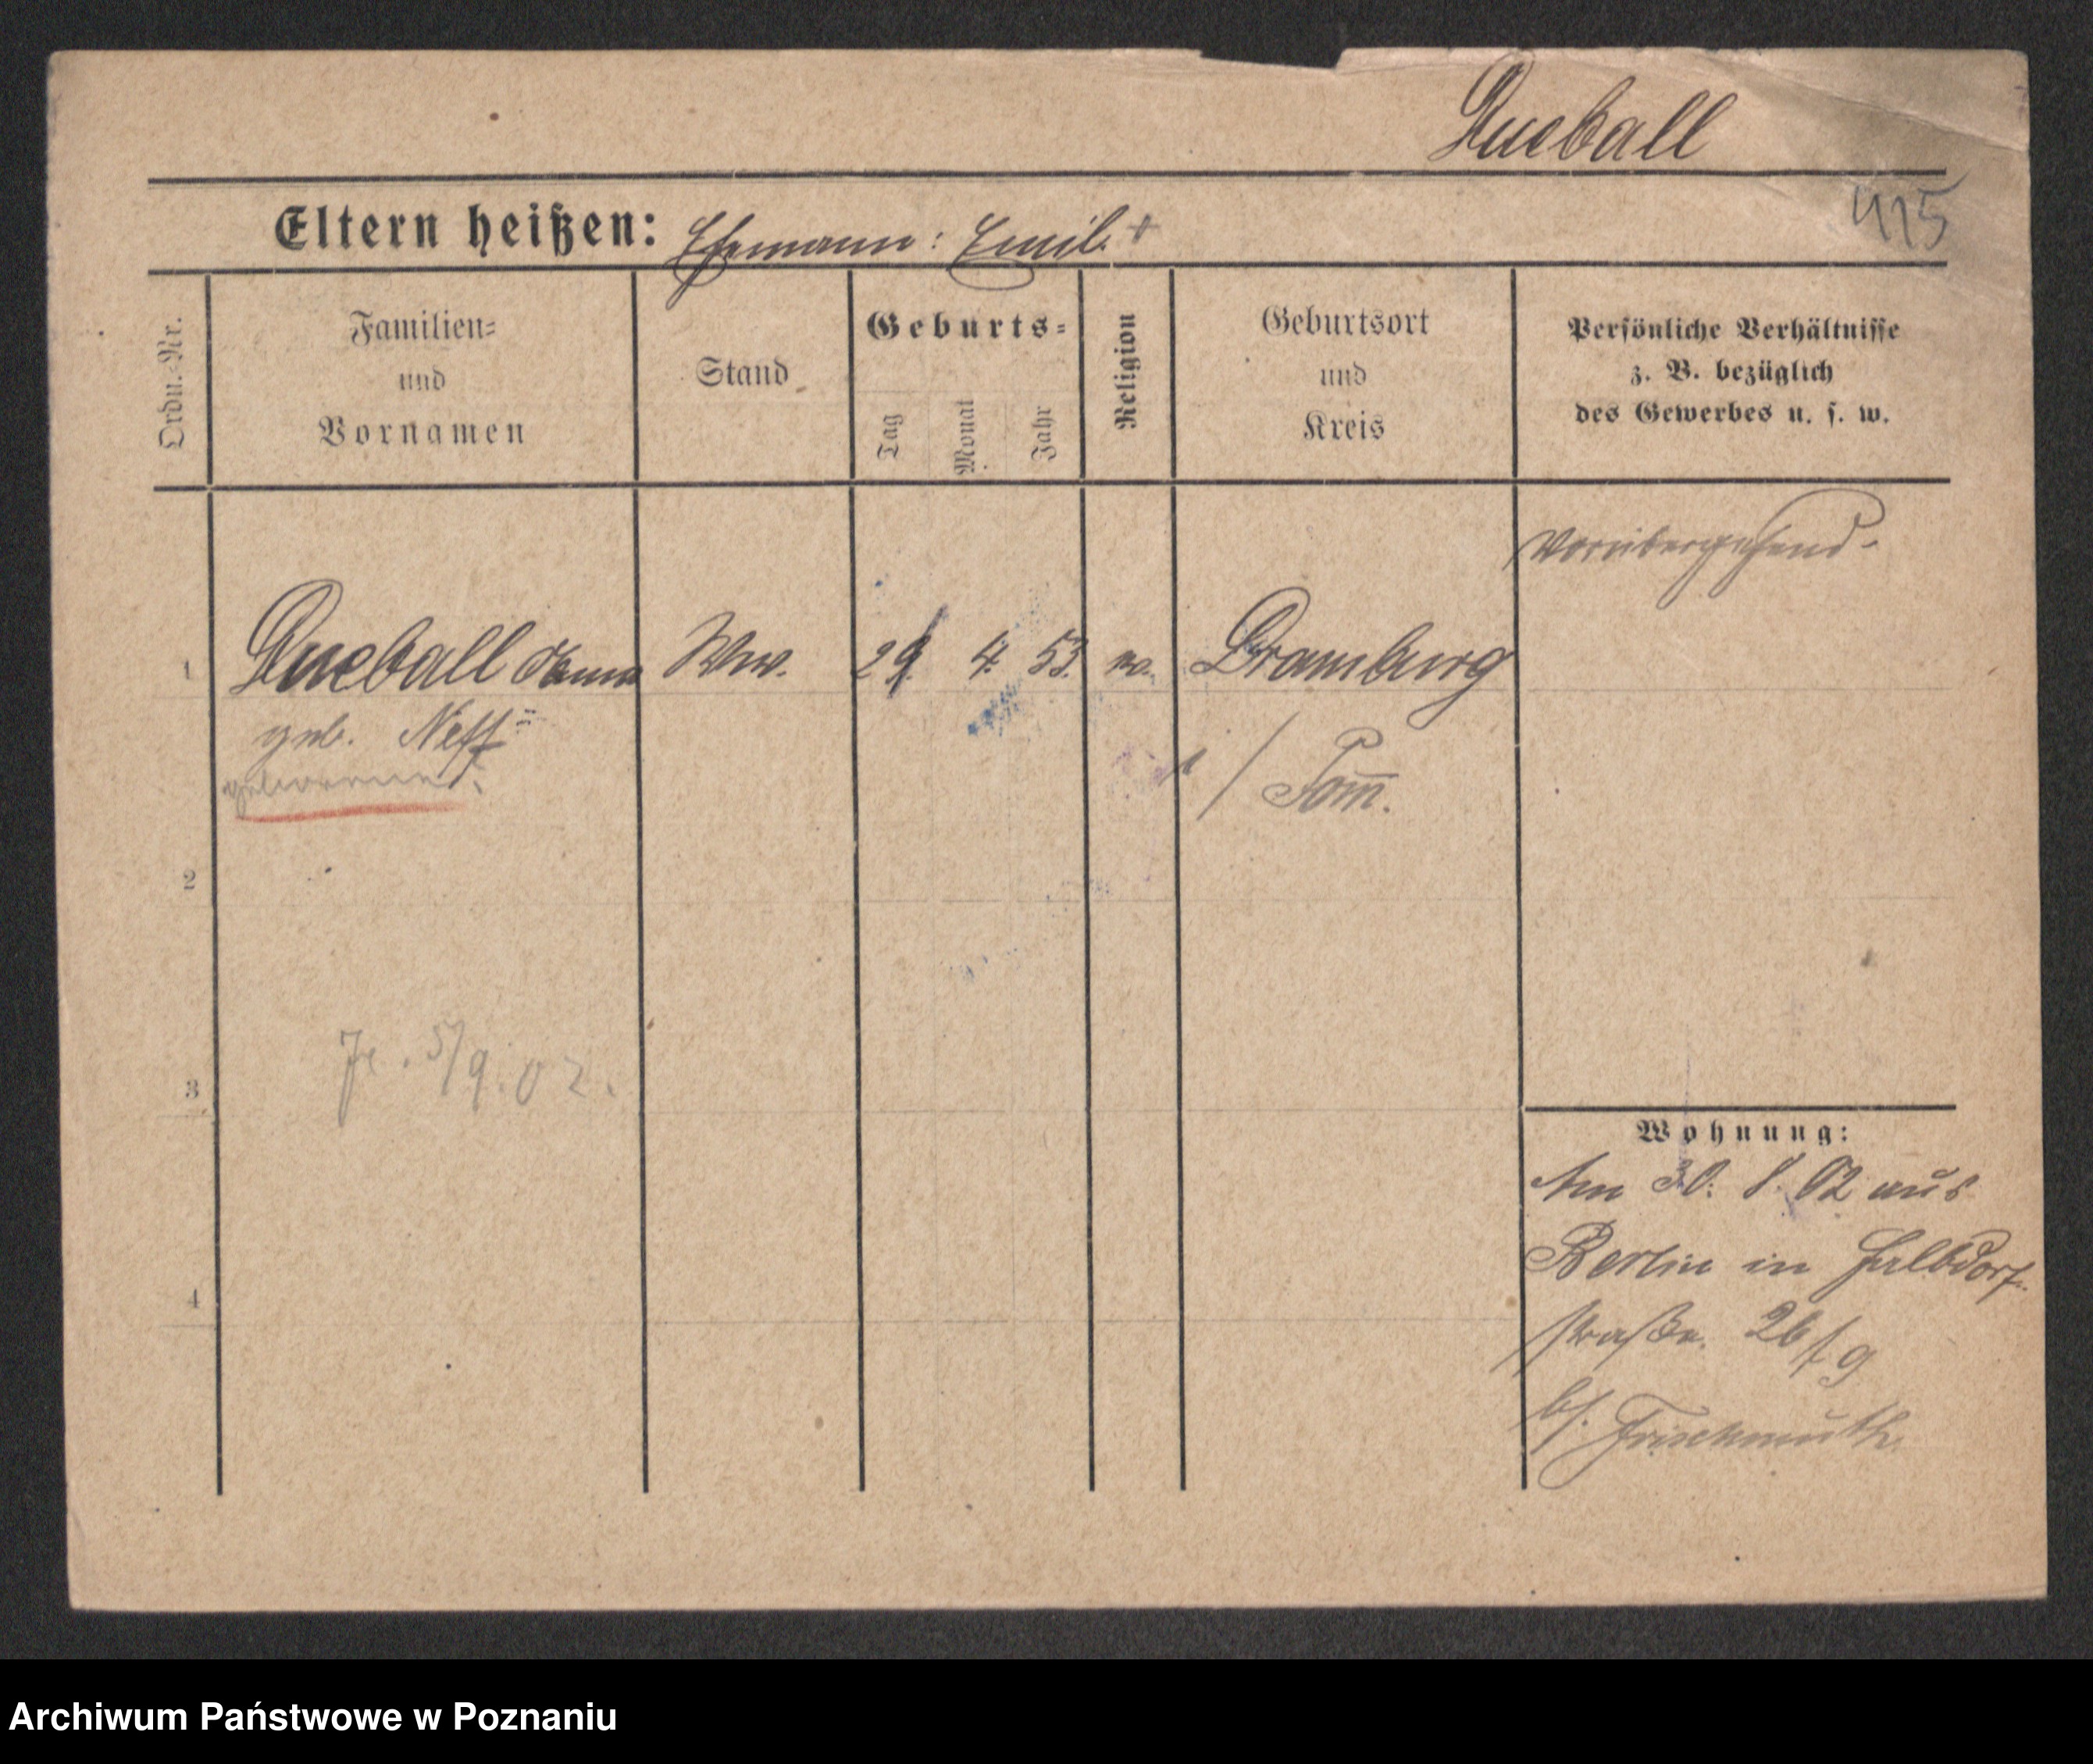 Queball
415
Eltern heißen: Ehemann: Emil. +
Ordn.-Nr.
Familien-
und
Vornamen
Stand
Geburts-
Tag
Monat
Jahr
Religion
Geburtsort
und
Kreis
Persönliche Verhältnisse
z. B. bezüglich
des Gewerbes u. s. w.
Vorübergehend.
1 Queball Anna Ww. 29. 4. 53. ev. Dramburg
geb. Neff
/ Pom̅.
2
3
5/9.02.
4
Wohnung:
Am 30. 8. 02 aus
Berlin in Halbdorf-
straße. 26 f. g
b/. Frischmuth
Archiwum Państwowe w Poznaniu